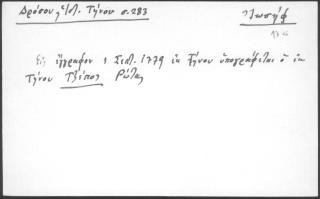 Δρόσου Ἱστ. Τήνου σ. 283
Ἰωσήφ
Εἰς ἔγγραφον 1 Σεπτ. 1779 ἐκ Τήνου ὑπογράφεται ὁ ἐκ
Τήνου